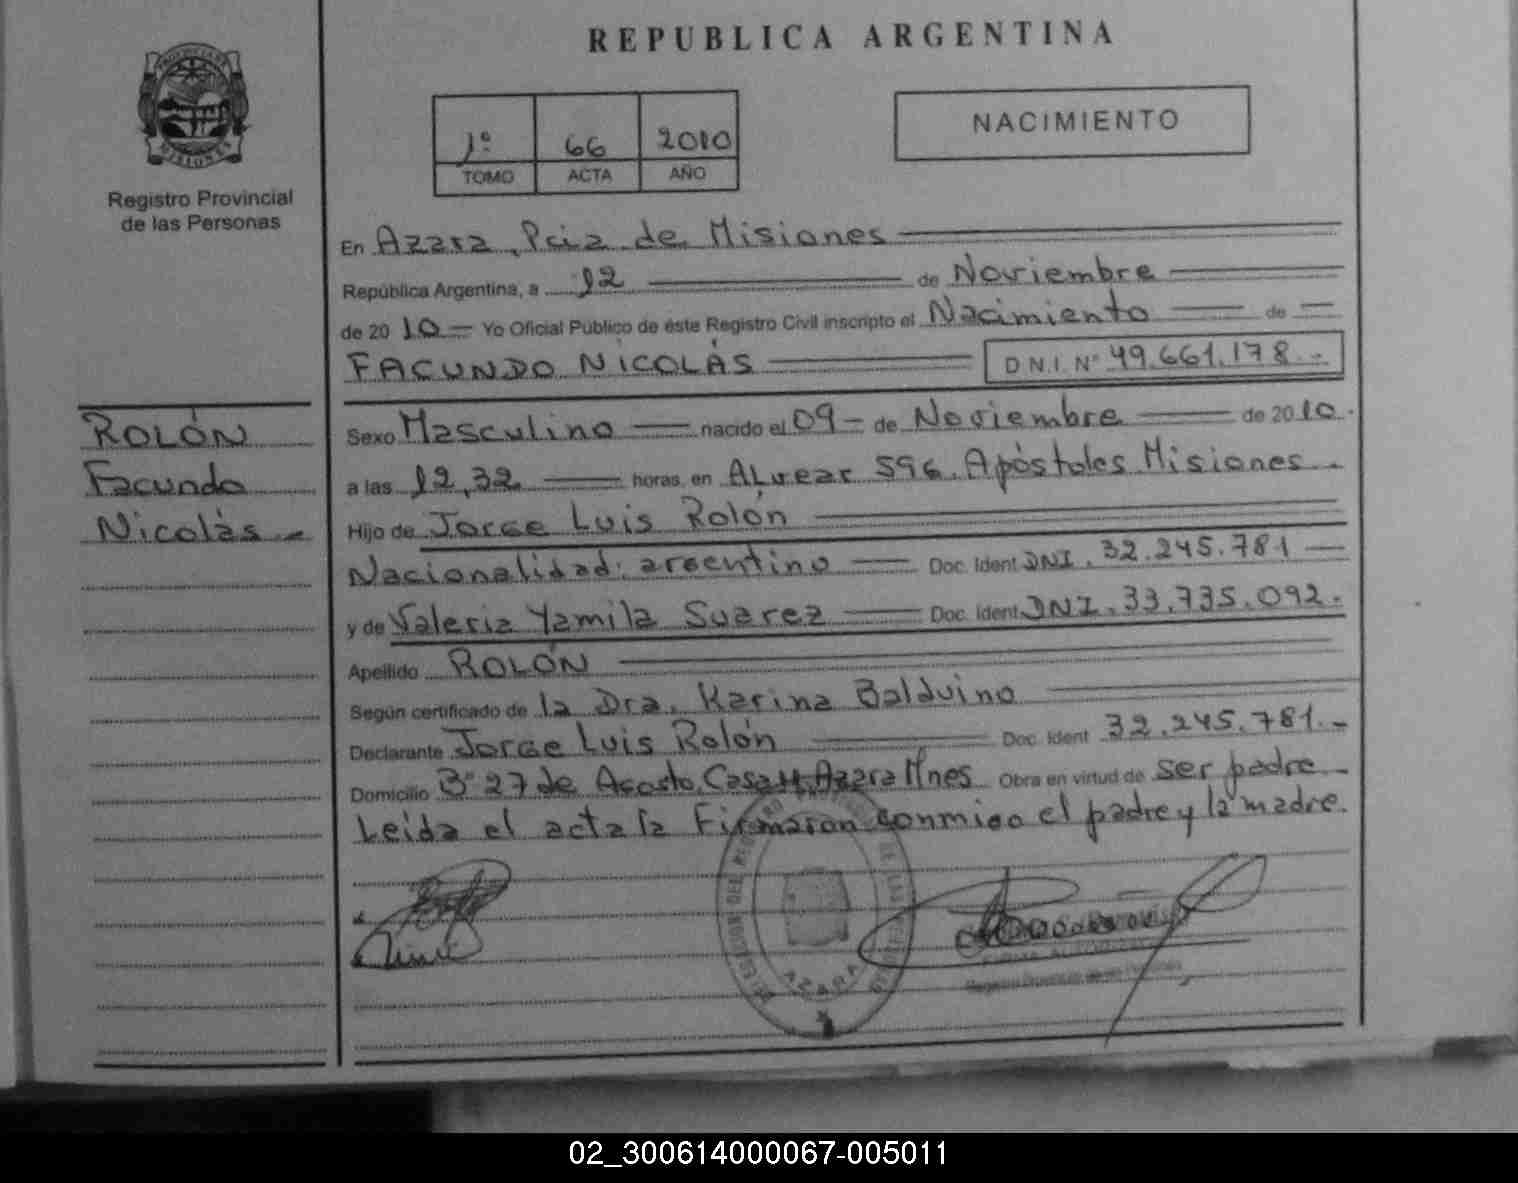 REPUBLICA ARGENTINA
PROVINCIA DE
MISIONES
Registro Provincial
de las Personas
1º 66 2010
TOMO ACTA AÑO
NACIMIENTO
En Azara, Pcia de Misiones
República Argentina, a 12 de Noviembre
de 2010 Yo Oficial Público de éste Registro Civil inscripto el Nacimiento de
FACUNDO NICOLÁS D.N.I. Nº 49.661.178.-
ROLÓN
Facundo
Nicolás.-
Sexo Masculino nacido el 09 de Noviembre de 2010.
a las 12,32 horas, en ALvear 596. Apóstoles Misiones.
Hijo de Jorge Luis Rolón
Nacionalidad: argentino Doc. Ident DNI. 32.245.781
y de Valeria Yamila Suarez Doc. Ident DNI. 33.735.092.
Apellido ROLÓN
Según certificado de la Dra. Karina Balduino
Declarante Jorge Luis Rolón Doc. Ident 32.245.781.-
Domicilio Bº 27 de Agosto, Casa Azara Mnes Obra en virtud de ser padre
Leída el acta la Firmaron conmigo el padre y la madre.
DELEGACION DEL REGISTRO PROVINCIAL DE LAS PERSONAS
AZARA
Registro Provincial de las Personas
02_300614000067-005011